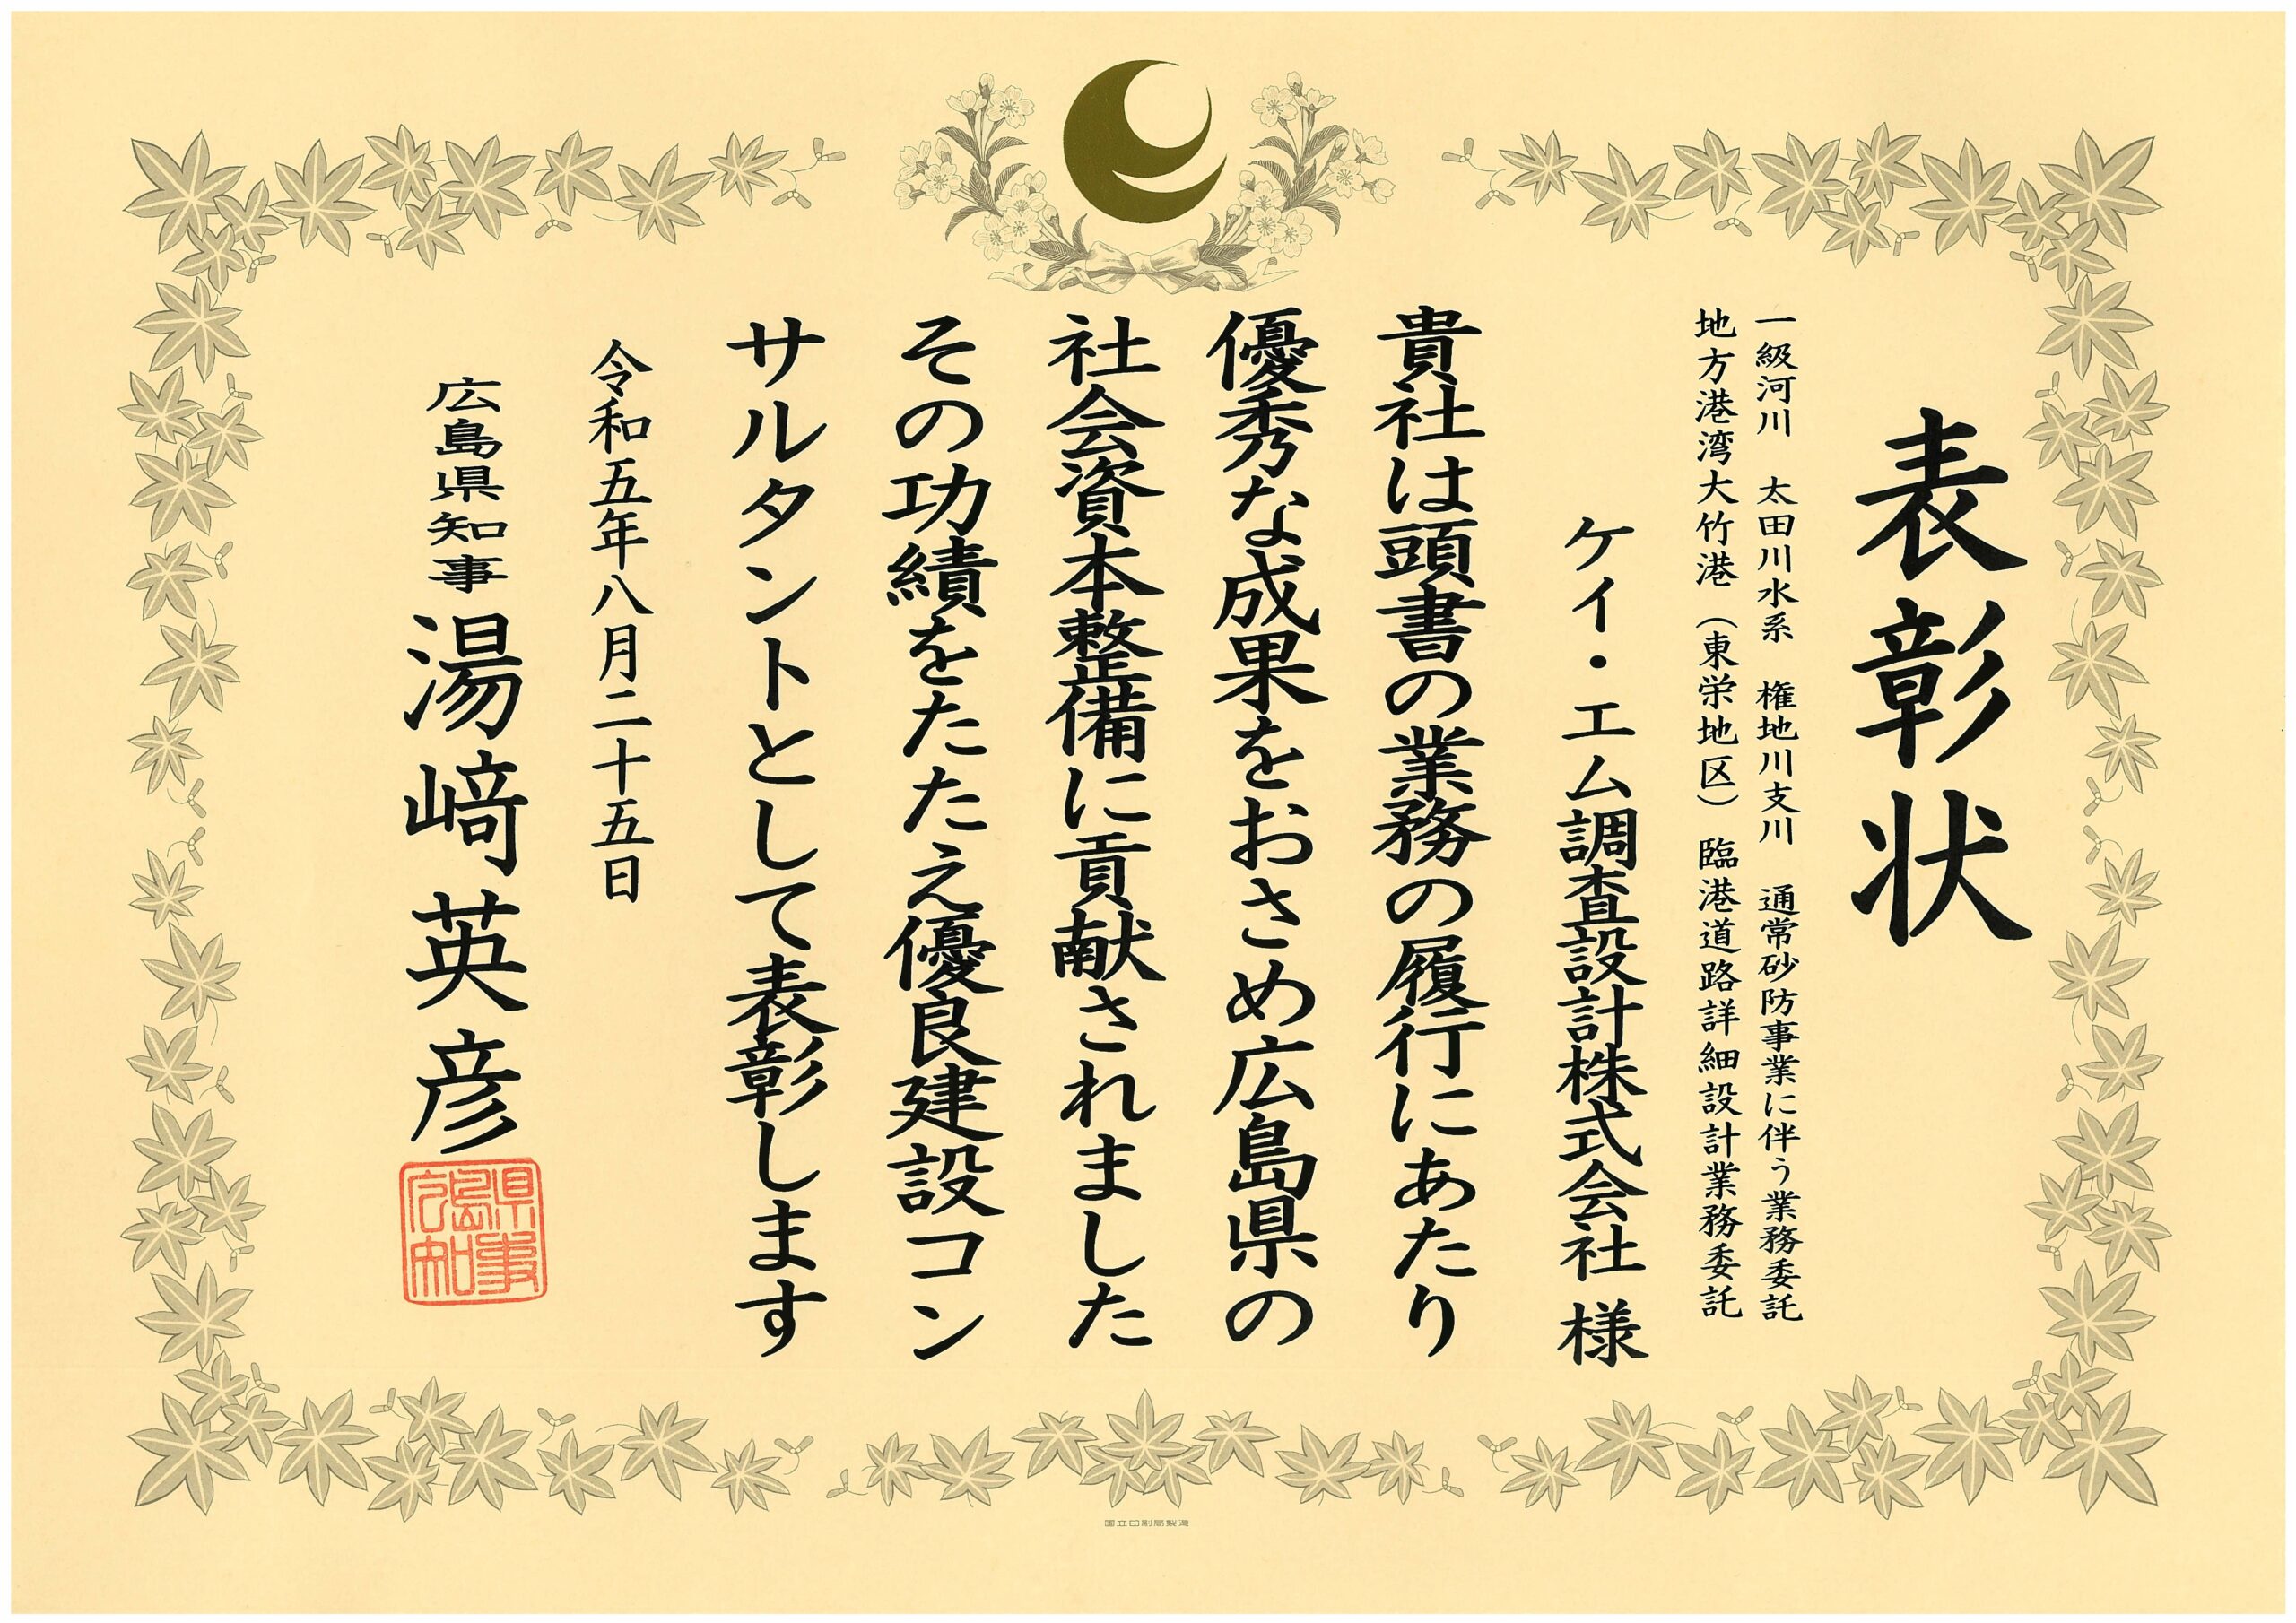 表彰状
一級河川　太田川水系　権地川支川　通常砂防事業に伴う業務委託
地方港湾大竹港（東栄地区）臨港道路詳細設計業務委託
ケイ・エム調査設計株式会社 様
貴社は頭書の業務の履行にあたり
優秀な成果をおさめ広島県の
社会資本整備に貢献されました
その功績をたたえ優良建設コン
サルタントとして表彰します
令和五年八月二十五日
広島県知事 湯﨑英彦
広島県知事
国立印刷局製造